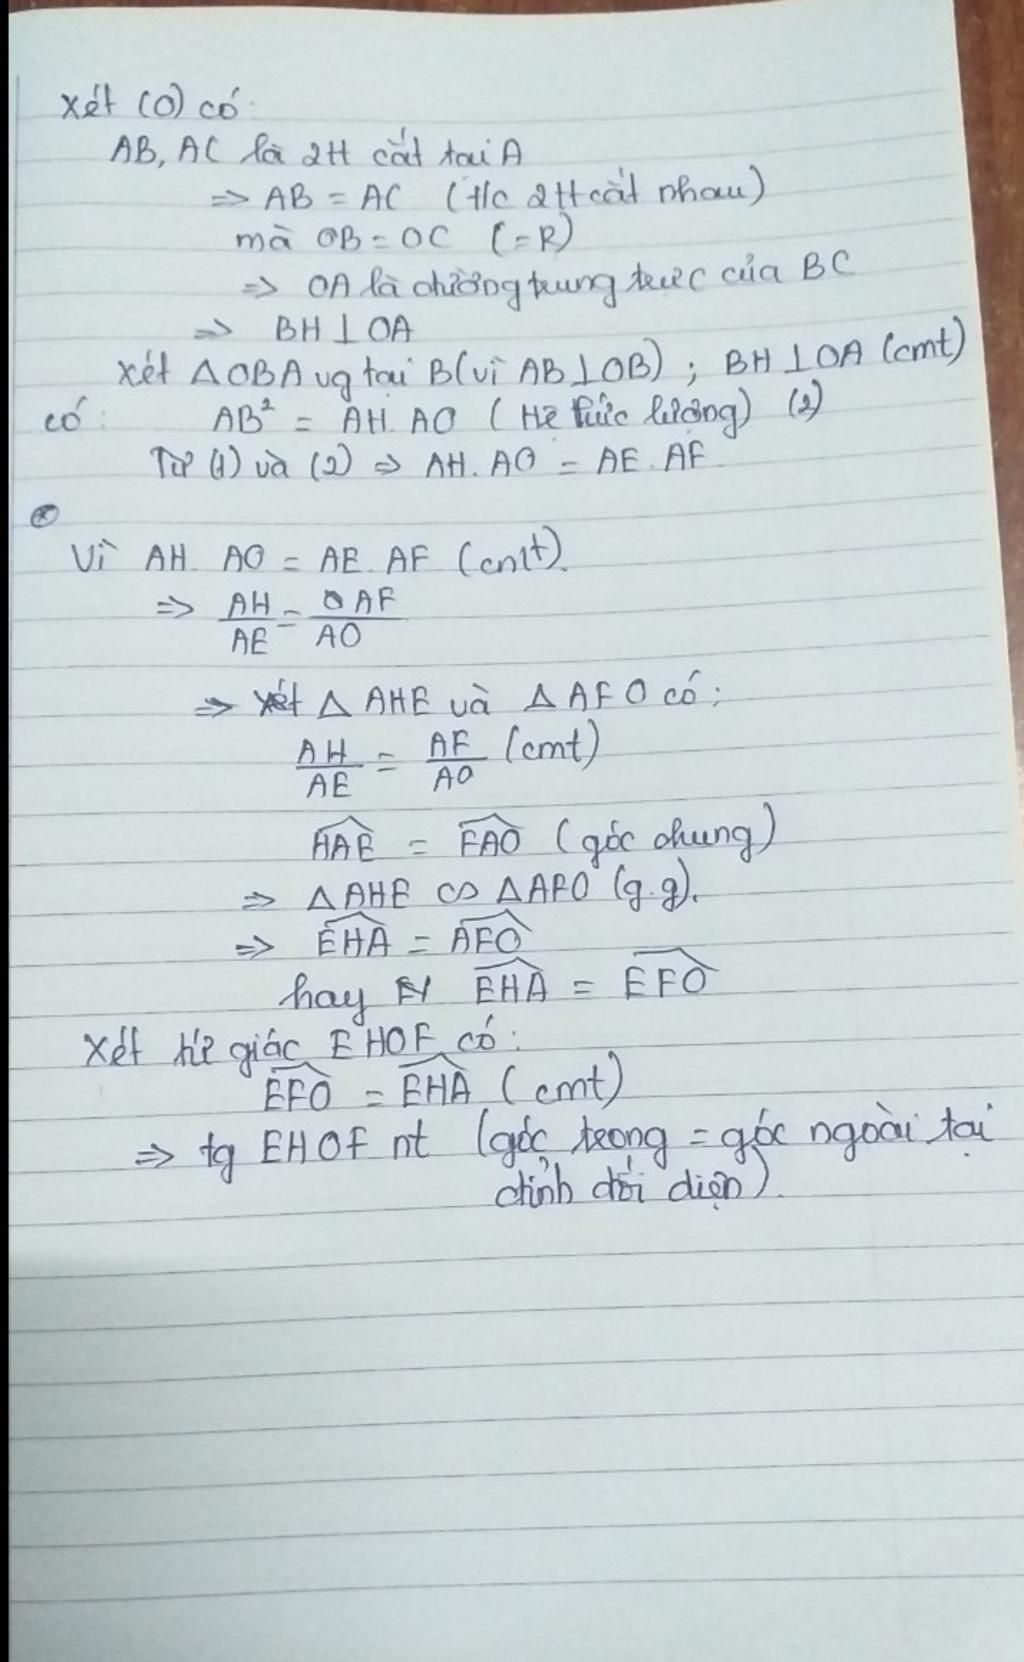 Xét (O) có:
AB, AC là 2tt cắt tại A
=> AB = AC (t/c 2tt cắt nhau)
mà OB = OC (=R)
=> OA là đường trung trực của BC
=> BH ⊥ OA
Xét △OBA vg tại B (vì AB ⊥ OB) ; BH ⊥ OA (cmt)
có: AB² = AH. AO (Hệ thức lượng) (2)
Từ (1) và (2) => AH. AO = AE. AF
Vì AH. AO = AE. AF (cmt).
=> AH/AE = AF/AO
=> Xét △ AHE và △ AFO có:
AH/AE = AF/AO (cmt)
\widehat{HAE} = \widehat{FAO} (góc chung)
=> △AHE ∽ △AFO (g.g).
=> \widehat{EHA} = \widehat{AFO}
hay \widehat{EHA} = \widehat{EFO}
Xét tứ giác EHOF có:
\widehat{EFO} = \widehat{EHA} (cmt)
=> tg EHOF nt (góc trong = góc ngoài tại
đỉnh đối diện).